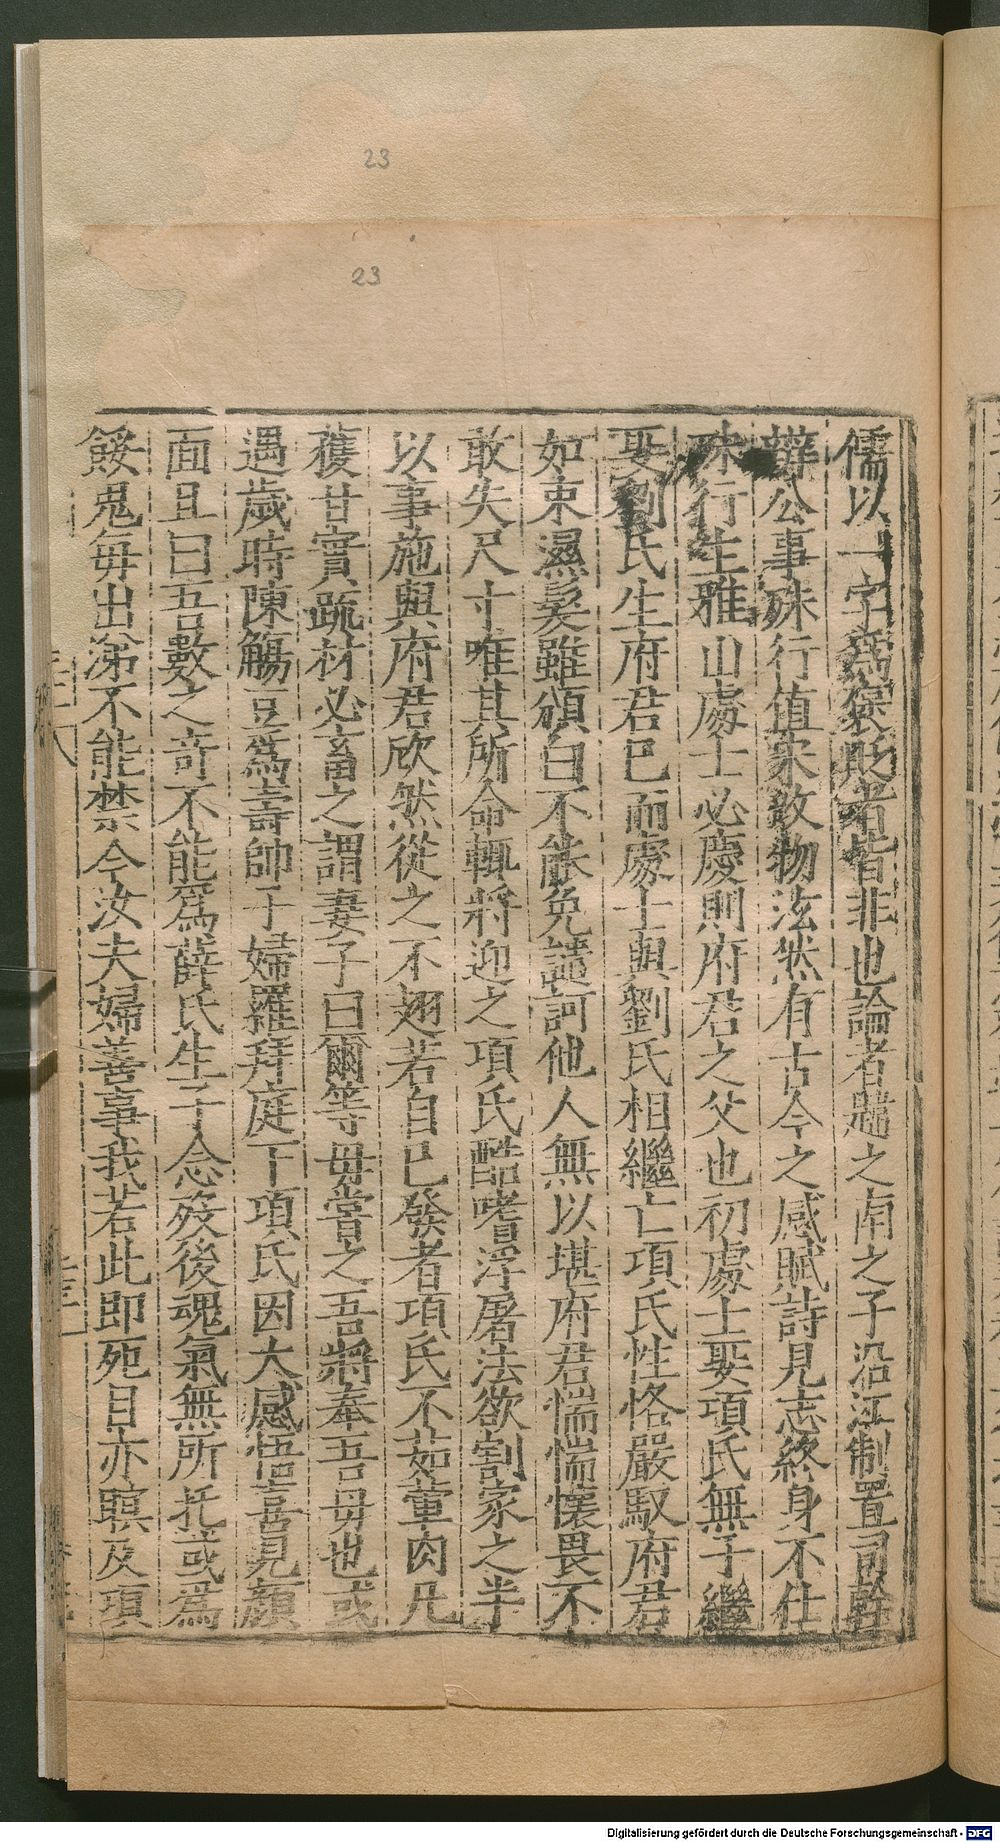 23
23
儒以一字爲襃貶者皆非也論者韙之南之子沿江制置司幹
辦公事殊行值宋敗物泫然有古今之感賦詩見志終身不仕
殊行生雅山處士必慶則府君之父也初處士娶項氏無子繼
娶劉氏生府君已而處士與劉氏相繼亡項氏性恪嚴馭府君
如束濕髮雖頒白不能免譴訶他人無以堪府君惴惴懷畏不
敢失尺寸唯其所命輒將迎之項氏酷嗜浮屠法欲割家之半
以事施與府君欣然從之不翅若自已發者項氏不茹葷肉凡
穫甘實蔬材必畜之謂妻子曰爾等毋嘗之吾將奉吾毋也或
遇歲時陳觴豆爲壽帥子婦羅拜庭下項氏因大感悟喜見顏
面且曰吾數之竒不能爲薛氏生子念歿後魂氣無所托或爲
餒鬼每出涕不能禁今汝夫婦善事我若此即死目亦瞑及項
Digitalisierung gefördert durch die Deutsche Forschungsgemeinschaft - DFG